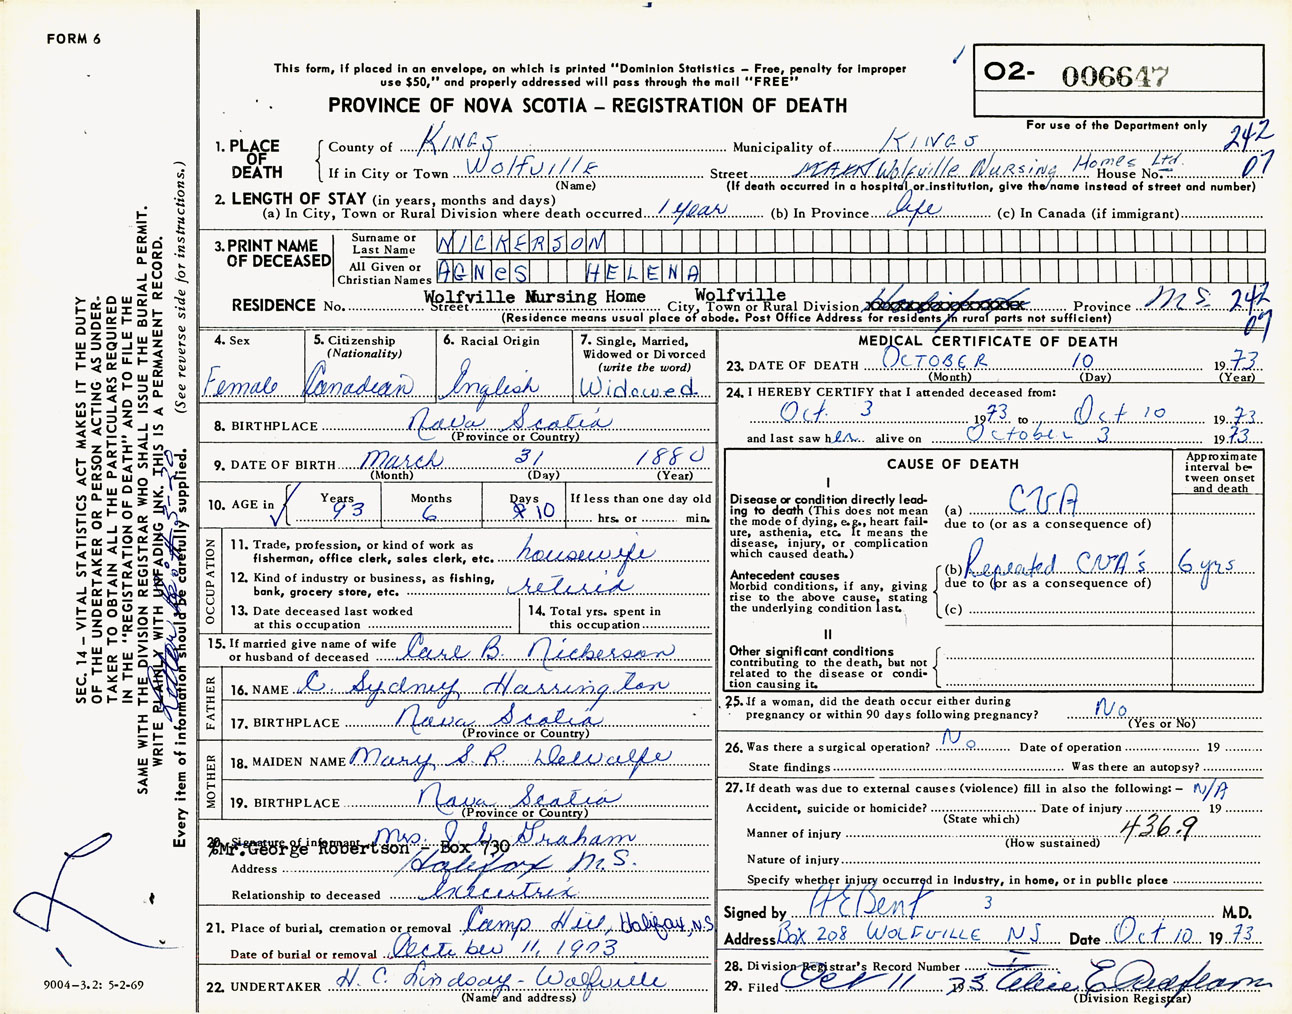 FORM 6
This form, if placed in an envelope, on which is printed "Dominion Statistics – Free, penalty for improper
use $50," and properly addressed will pass through the mail "FREE"
PROVINCE OF NOVA SCOTIA – REGISTRATION OF DEATH
02- 006647
For use of the Department only
242
07
1. PLACE OF DEATH
County of KINGS Municipality of KINGS
If in City or Town Wolfville Street Wolfville Nursing Homes Ltd. House No.
(Name) (If death occurred in a hospital or institution, give the name instead of street and number)
2. LENGTH OF STAY (in years, months and days)
(a) In City, Town or Rural Division where death occurred 1 year (b) In Province life (c) In Canada (if immigrant)
3. PRINT NAME OF DECEASED
Surname or Last Name NICKERSON
All Given or Christian Names AGNES HELENA
RESIDENCE No. Street Wolfville Nursing Home City, Town or Rural Division Wolfville Province N.S. 242
07
(Residence means usual place of abode. Post Office Address for residents in rural parts not sufficient)
4. Sex Female
5. Citizenship (Nationality) Canadian
6. Racial Origin English
7. Single, Married, Widowed or Divorced (write the word) Widowed
8. BIRTHPLACE Nova Scotia
(Province or Country)
9. DATE OF BIRTH March 31 1880
(Month) (Day) (Year)
10. AGE in Years 93 Months 6 Days 10 If less than one day old hrs. or min.
OCCUPATION
11. Trade, profession, or kind of work as fisherman, office clerk, sales clerk, etc. housewife
12. Kind of industry or business, as fishing, bank, grocery store, etc. retired
13. Date deceased last worked at this occupation
14. Total yrs. spent in this occupation
15. If married give name of wife or husband of deceased Carl B. Nickerson
FATHER
16. NAME C. Sydney Harrington
17. BIRTHPLACE Nova Scotia
(Province or Country)
MOTHER
18. MAIDEN NAME Mary S. R. DeWolfe
19. BIRTHPLACE Nova Scotia
(Province or Country)
20. Signature of informant Mrs. Graham
%Mr. George Robertson - Box 730
Address Halifax N.S.
Relationship to deceased Executrix
21. Place of burial, cremation or removal Camp Hill, Halifax, N.S
Date of burial or removal October 11, 1973
22. UNDERTAKER H. C. Lindsay - Wolfville
(Name and address)
MEDICAL CERTIFICATE OF DEATH
23. DATE OF DEATH OCTOBER 10 1973
(Month) (Day) (Year)
24. I HEREBY CERTIFY that I attended deceased from:
Oct. 3 1973 to Oct 10 1973
and last saw her alive on October 3 1973
CAUSE OF DEATH
Approximate interval between onset and death
I
Disease or condition directly leading to death (This does not mean the mode of dying, e.g., heart failure, asthenia, etc. It means the disease, injury, or complication which caused death.)
(a) CVA
due to (or as a consequence of)
Antecedent causes
Morbid conditions, if any, giving rise to the above cause, stating the underlying condition last.
(b) Repeated CVA's 6 yrs
due to (or as a consequence of)
(c)
II
Other significant conditions
contributing to the death, but not related to the disease or condition causing it.
25. If a woman, did the death occur either during pregnancy or within 90 days following pregnancy? No
(Yes or No)
26. Was there a surgical operation? No Date of operation 19
State findings Was there an autopsy?
27. If death was due to external causes (violence) fill in also the following: – N/A
Accident, suicide or homicide? Date of injury 19
(State which)
Manner of injury 436.9
(How sustained)
Nature of injury
Specify whether injury occurred in industry, in home, or in public place
Signed by H E Bent 3 M.D.
Address Box 208 WOLFVILLE NS Date Oct 10 1973
28. Division Registrar's Record Number
29. Filed Oct 11 1973
(Division Registrar)
SEC. 14 – VITAL STATISTICS ACT MAKES IT THE DUTY
OF THE UNDERTAKER OR PERSON ACTING AS UNDER-
TAKER TO OBTAIN ALL THE PARTICULARS REQUIRED
IN THE "REGISTRATION OF DEATH" AND TO FILE THE
SAME WITH THE DIVISION REGISTRAR WHO SHALL ISSUE THE BURIAL PERMIT.
WRITE PLAINLY WITH UNFADING INK. THIS IS A PERMANENT RECORD.
Every item of information should be carefully supplied. (See reverse side for instructions.)
9004-3.2: 5-2-69